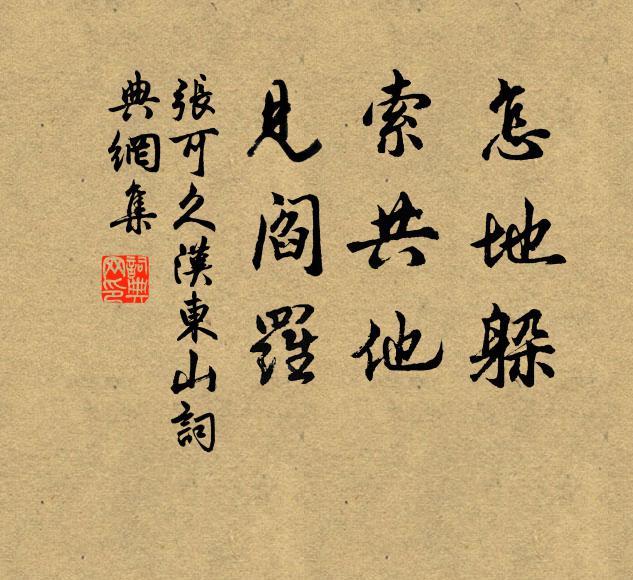 怎地躲
索共他
見閻羅
張可久漢東山詞
典網集
詞典網印